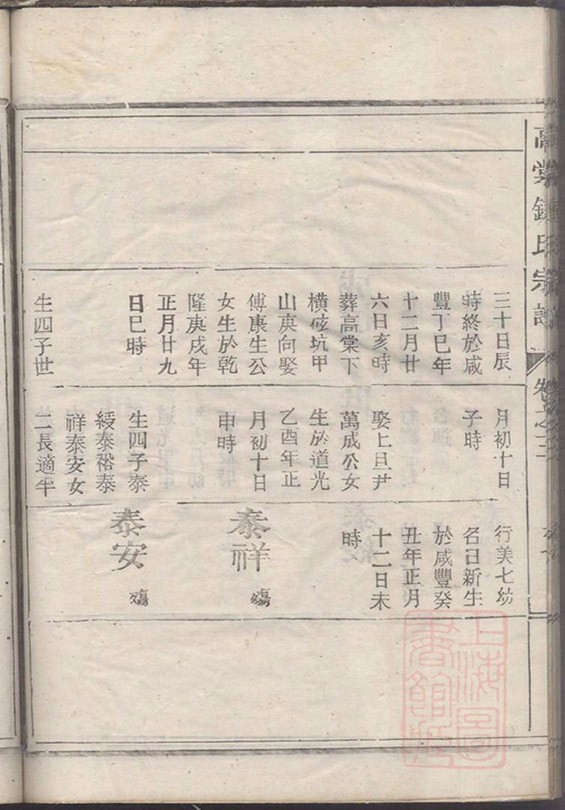 高棠鍾氏宗譜
三十日辰
時終於咸
豐丁巳年
十二月廿
六日亥時
葬高棠下
坑甲
山庚向娶
生公
女生於乾
隆庚戌年
正月廿九
日巳時
生四子世
月初十日
子時
娶上旦尹
萬成公女
生於道光
乙酉年正
月初十日
申時
生四子泰
綬泰裕泰
祥泰安女
二長適牛
行美七幼
名日新生
於咸豐癸
丑年正月
十二日未
時
泰祥 殤
泰安 殤
上海圖
書館